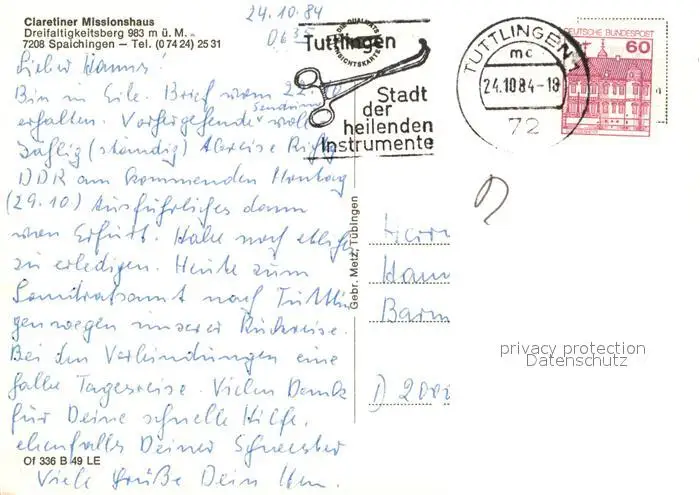 Claretiner Missionshaus
Dreifaltigkeitsberg 983 m ü. M.
7208 Spaichingen – Tel. (0 74 24) 25 31
24.10.84
Lieber Hanns!
Bin in Eile. Brief vom 22.10
erhalten. Vorhergehende Sendung
(ständig) Abreise Richtg
DDR am kommenden Montag
(29.10) Ausführliches dann
von Erfurt. Habe noch
zu erledigen. Heute zum
Landratsamt nach Tuttlin
gen wegen unserer Rückreise.
Bei den Verbindungen eine
halbe Tagesreise. Vielen Dank
für Deine schnelle Hilfe,
ebenfalls Deiner Schwester
Viele Grüße Dein
Of 336 B 49 LE
Gebr. Metz, Tübingen
DIE QUALITÄTS
ANSICHTSKARTE
Tuttlingen
Stadt
der
heilenden
Instrumente
TUTTLINGEN 1
mc
24.10.84-18
72
DEUTSCHE BUNDESPOST
60
Herrn
Barm
D 2000
privacy protection
Datenschutz